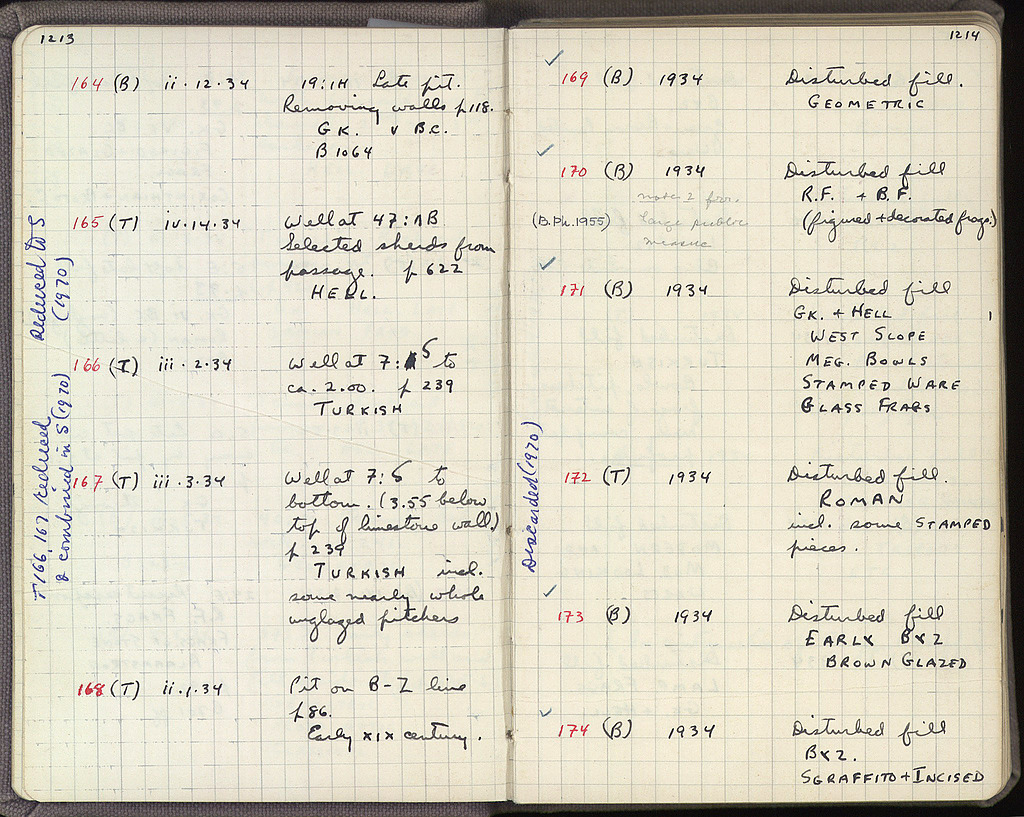 1213
164 (B) ii·12·34 19:ΙΗ Late pit.
Removing walls p118.
GK. V B.C.
B 1064
Reduced to S
(1970)
165 (T) iv·14·34 Well at 47:ΛB
Selected sherds from
passage. p 622
HELL.
T166, 167 reduced
& combined in S (1970)
166 (T) iii·2·34 Well at 7:S to
ca. 2.00. p 239
TURKISH
167 (T) iii·3·34 Well at 7:S to
bottom. (3.55 below
top of limestone wall.)
p 239
TURKISH incl.
some nearly whole
unglazed pitchers
168 (T) ii·1·34 Pit on B-Z line
p86.
Early XIX century.
1214
169 (B) 1934 Disturbed fill.
GEOMETRIC
170 (B) 1934 Disturbed fill
R.F. + B.F.
(B.Ph.1955) (figured + decorated frags.)
note 2 from
large public
measure
171 (B) 1934 Disturbed fill
GK. + HELL
WEST SLOPE
MEG. BOWLS
STAMPED WARE
GLASS FRAGS
Discarded (1970)
172 (T) 1934 Disturbed fill.
ROMAN
incl. some STAMPED
pieces.
173 (B) 1934 Disturbed fill
EARLY BYZ
BROWN GLAZED
174 (B) 1934 Disturbed fill
BYZ.
SGRAFFITO + INCISED